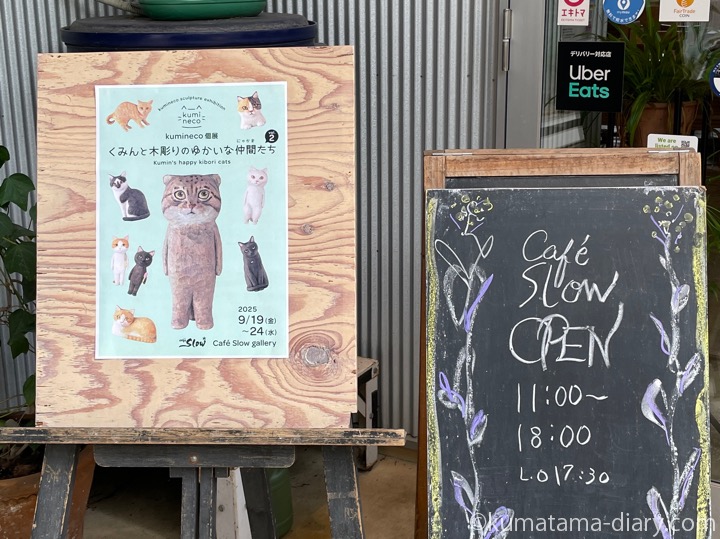 kumineco sculpture exhibition
kumi
neco
kumineco 個展
くみんと木彫りのゆかいな仲間たち
にゃかま
2
Kumin's happy kibori cats
2025
9/19(金)
~24(水)
Slow
Café Slow gallery
エキトマ
FAIRTRADE
COIN
デリバリー対応店
Uber
Eats
We are
Café
SLow
OPEN
11:00~
18:00
L.O 17:30
©kumatama-diary.com